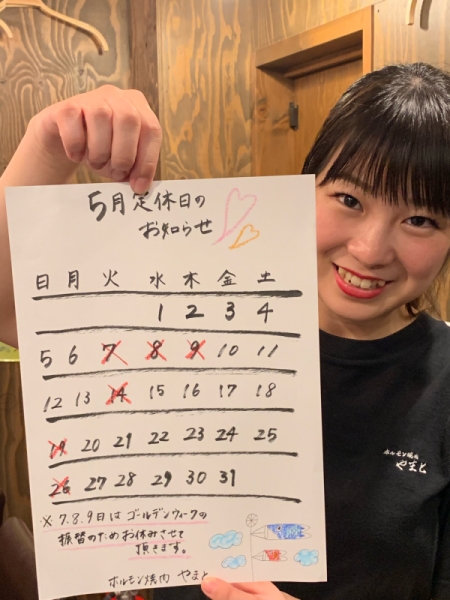 5月定休日の
お知らせ
日 月 火 水 木 金 土
1 2 3 4
5 6 7 8 9 10 11
12 13 14 15 16 17 18
19 20 21 22 23 24 25
26 27 28 29 30 31
※ 7.8.9日は ゴールデンウィークの
振替のためお休みさせて
頂きます。
ホルモン焼肉 やまと
ホルモン焼肉
やまと